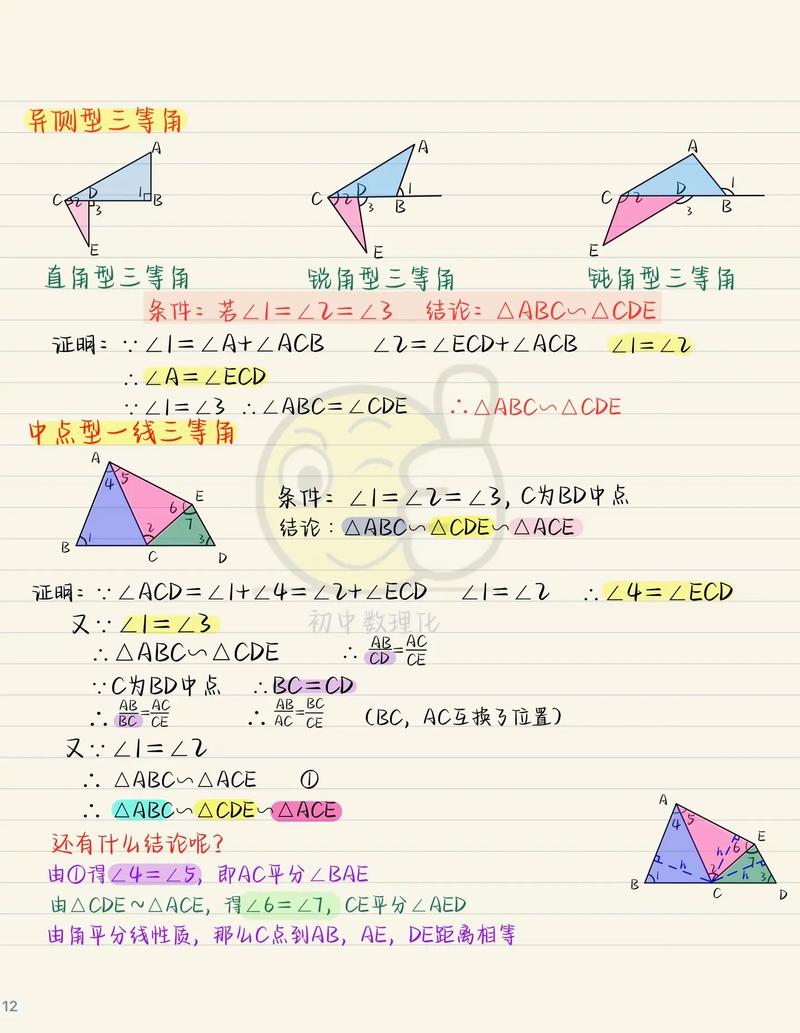 异侧型三等角
A
C 2 D 1 B
3
E
A
C 2 D 1
3 B
E
A
C 2 D 1
3 B
E
直角型三等角 锐角型三等角 钝角型三等角
条件：若∠1=∠2=∠3 结论：△ABC∽△CDE
证明：∵∠1=∠A+∠ACB ∠2=∠ECD+∠ACB ∠1=∠2
∴∠A=∠ECD
∵∠1=∠3 ∴∠ABC=∠CDE ∴△ABC∽△CDE
中点型一线三等角
A
4 5
E
6
7
B 1 2 3
C D
条件：∠1=∠2=∠3，C为BD中点
结论：△ABC∽△CDE∽△ACE
证明：∵∠ACD=∠1+∠4=∠2+∠ECD ∠1=∠2 ∴∠4=∠ECD
又∵∠1=∠3
初中数理化
∴△ABC∽△CDE ∴AB/CD=AC/CE
∵C为BD中点 ∴BC=CD
∴AB/BC=AC/CE ∴AB/AC=BC/CE （BC，AC互换了位置）
又∵∠1=∠2
∴△ABC∽△ACE ①
∴△ABC∽△CDE∽△ACE
还有什么结论呢？
由①得∠4=∠5，即AC平分∠BAE
由△CDE~△ACE，得∠6=∠7，CE平分∠AED
由角平分线性质，那么C点到AB，AE，DE距离相等
A
4 5
E
h 6
h 7
B 1 2 h 3
C D
12